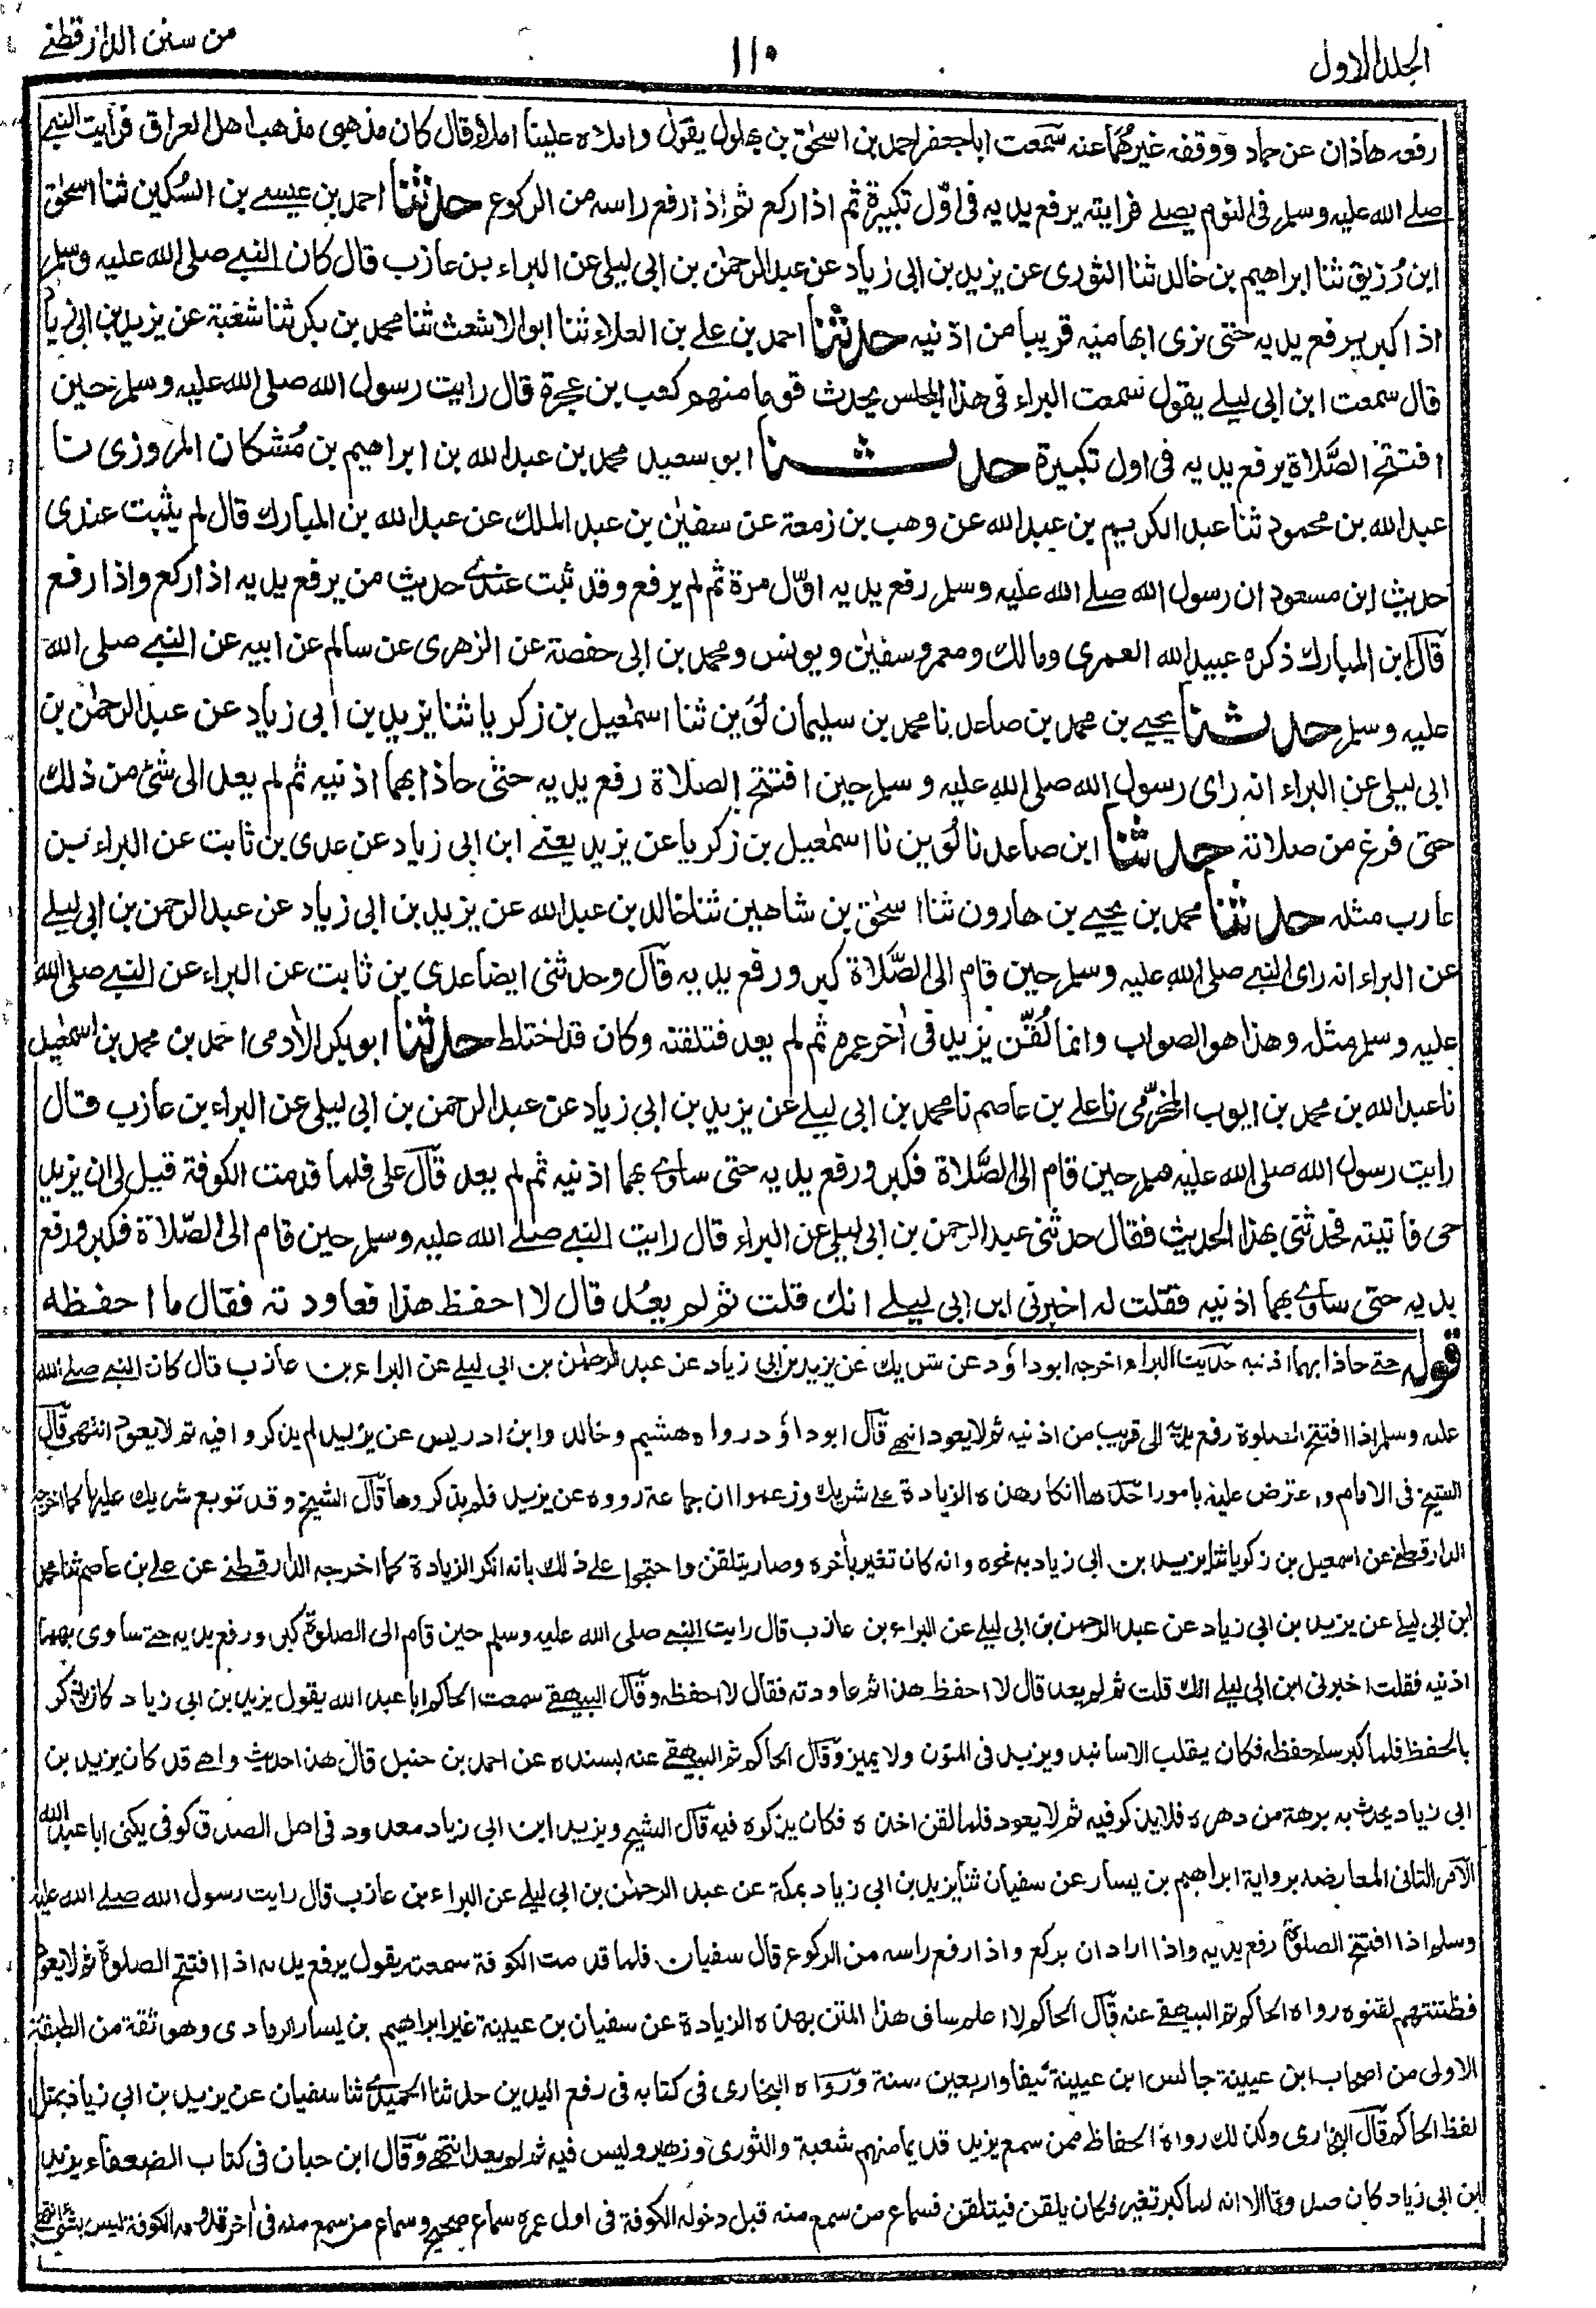 الجلد الاول
١١٠
من سنن الدارقطنے
رفعه هاذان عن حماد ووقفه غيرهما عنه سمعت اباجعفر احمد بن اسحٰق بن بهلول يقول واملاه علينا املاء قال كان مذهبى مذهب اهل العراق فرأيت النبے
صلے الله عليه وسلم فى النوم يصلے فرايته يرفع يديه فى اوّل تكبيرة ثم اذا ركع ثم اذا رفع راسه من الركوع حدثنا احمد بن عيسے بن السُكين ثنا اسحٰق
ابن رُزيق ثنا ابراهيم بن خالد ثنا الثورى عن يزيد بن ابى زياد عن عبد الرحمٰن بن ابى ليلى عن البراء بن عازب قال كان النبے صلى الله عليه وسلم
اذا كبر يرفع يديه حتى نرى ابهاميه قريبا من اذنيه حدثنا احمد بن علے بن العلاء ثنا ابوالاشعث ثنا محمد بن بكر ثنا شعبة عن يزيد بن ابى زياد
قال سمعت ابن ابى ليلے يقول سمعت البراء فى هذا المجلس يحدث قوما منهم كعب بن عجرة قال رايت رسول الله صلى الله عليه وسلم حين
افتتح الصَّلاة يرفع يديه فى اول تكبيرة حدثنا ابو سعيد محمد بن عبدالله بن ابراهيم بن مُشكان المروزى نا
عبدالله بن محمود ثنا عبد الكريم بن عبدالله عن وهب بن زمعة عن سفيٰن بن عبد الملك عن عبدالله بن المبارك قال لم يثبت عندى
حديث ابن مسعود ان رسول الله صلے الله عليه وسلم رفع يديه اوّل مرة ثم لم يرفع وقد ثبت عندے حديث من يرفع يديه اذا ركع واذا رفع
قال ابن المبارك ذكره عبيدالله العمرى ومالك ومعمر وسفيٰن ويونس ومحمد بن ابى حفصة عن الزهرى عن سالم عن ابيه عن النبے صلى الله
عليه وسلم حدثنا يحيے بن محمد بن صاعد نا محمد بن سليمان لُوَين ثنا اسمٰعيل بن زكريا ثنا يزيد بن ابى زياد عن عبد الرحمٰن بن
ابى ليلى عن البراء انه راى رسول الله صلى الله عليه وسلم حين افتتح الصلاة رفع يديه حتى حاذا بهما اذنيه ثم لم يعد الى شئ من ذلك
حتى فرغ من صلاته حدثنا ابن صاعد نا لُوَين نا اسمٰعيل بن زكريا عن يزيد يعنے ابن ابى زياد عن عدى بن ثابت عن البراء بن
عازب مثله حدثنا محمد بن يحيے بن هارون ثنا اسحٰق بن شاهين ثنا خالد بن عبدالله عن يزيد بن ابى زياد عن عبد الرحمن بن ابى ليلے
عن البراء انه راى النبے صلى الله عليه وسلم حين قام الى الصَّلاة كبر ورفع يديه قال وحدثنى ايضا عدى بن ثابت عن البراء عن النبے صلى الله
عليه وسلم مثله وهذا هو الصواب وانما لُقّن يزيد فى اٰخر عمره ثم لم يعد فتلقنه وكان قد اختلط حدثنا ابو بكر الأدمى احمد بن محمد بن اسمٰعيل
نا عبدالله بن محمد بن ايوب المخرّمى نا علے بن عاصم نا محمد بن ابى ليلے عن يزيد بن ابى زياد عن عبد الرحمن بن ابى ليلى عن البراء بن عازب قال
رايت رسول الله صلى الله عليه وسلم حين قام الى الصَّلاة فكبر ورفع يديه حتى ساوٰے بهما اذنيه ثم لم يعد قال على فلما قدمت الكوفة قيل لى ان يزيد
حى فاتيته فحدثنى بهذا الحديث فقال حدثنى عبد الرحمن بن ابى ليلى عن البراء قال رايت النبے صلے الله عليه وسلم حين قام الى الصّلاة فكبر ورفع
يديه حتى ساوٰے بهما اذنيه فقلت له اخبرنى ابن ابى ليلے انك قلت ثم لم يعُد قال لا احفظ هذا فعاودته فقال ما احفظه
قوله حتے حاذا بهما اذنيه حديث البراء اخرجه ابوداؤد عن شريك عن يزيد بن ابى زياد عن عبد الرحمٰن بن ابى ليلے عن البراء بن عازب قال كان النبے صلے الله
عليه وسلم اذا افتتح الصلوة رفع يديه الى قريب من اذنيه ثم لا يعود انتهے قال ابوداؤد رواه هشيم وخالد وابن ادريس عن يزيد لم يذكروا فيه ثم لا يعود انتهى قال
الشيخ فى الامام واعترض عليه بامور احدها انكار هذه الزيادة علے شريك وزعموا ان جماعة رووه عن يزيد فلم يذكروها قال الشيخ وقد توبع شريك عليها كما اخرجه
الدارقطنے عن اسمعيل بن زكريا ثنا يزيد بن ابى زياد به نحوه وانه كان تغير بأخره وصار يتلقن واحتجوا علے ذلك بانه انكر الزيادة كما اخرجه الدارقطنے عن علے بن عاصم ثنا محمد
ابن ابى ليلے عن يزيد بن ابى زياد عن عبد الرحمن بن ابى ليلے عن البراء بن عازب قال رايت النبے صلى الله عليه وسلم حين قام الى الصلوة كبر ورفع يديه حتے ساوى بهما
اذنيه فقلت اخبرنى ابن ابى ليلے انك قلت ثم لم يعد قال لا احفظ هذا ثم عاودته فقال لا احفظه وقال البيهقے سمعت الحاكم اباعبد الله يقول يزيد بن ابى زياد كان يذكر
بالحفظ فلما كبر ساء حفظه فكان يقلب الاسانيد ويزيد فى المتون ولا يميز وقال الحاكم ثم البيهقے عنه بسنده عن احمد بن حنبل قال هذا حديث واهے قد كان يزيد بن
ابى زياد يحدث به برهة من دهره فلا يذكر فيه ثم لا يعود فلما لقن اخذه فكان يذكره فيه قال الشيخ ويزيد ابن ابى زياد معدود فى اهل الصدق كوفى يكنى اباعبد الله
الآمر الثانى المعارضة برواية ابراهيم بن يسار عن سفيان ثنا يزيد بن ابى زياد بمكة عن عبد الرحمٰن بن ابى ليلے عن البراء بن عازب قال رايت رسول الله صلے الله عليه
وسلم اذا افتتح الصلوة رفع يديه واذا اراد ان يركع واذا رفع راسه من الركوع قال سفيان فلما قدمت الكوفة سمعته يقول يرفع يديه اذا افتتح الصلوة ثم لا يعود
فظننتهم لقنوه رواه الحاكم ثم البيهقے عنه قال الحاكم لا اعلم ساق هذا المتن بهذه الزيادة عن سفيان بن عيينة غير ابراهيم بن يسار الرمادى وهو ثقة من الطبقة
الاولى من اصحاب ابن عيينة جالس ابن عيينة نيفا واربعين سنة ورواه البخارى فى كتابه فى رفع اليدين حدثنا الحميدے ثنا سفيان عن يزيد بن ابى زياد بمثل
لفظ الحاكم قال البخارى وكذلك رواه الحفاظ ممن سمع يزيد قديما منهم شعبة والثورى وزهير وليس فيه ثم لم يعد انتهے وقال ابن حبان فى كتاب الضعفاء يزيد
بن ابى زياد كان صدوقا الا انه لما كبر تغير فكان يلقن فيتلقن فسماع من سمع منه قبل دخوله الكوفة فى اول عمره سماع صحيح وسماع من سمع منه فى اٰخر قدومه الكوفة ليس بشئ انتهے